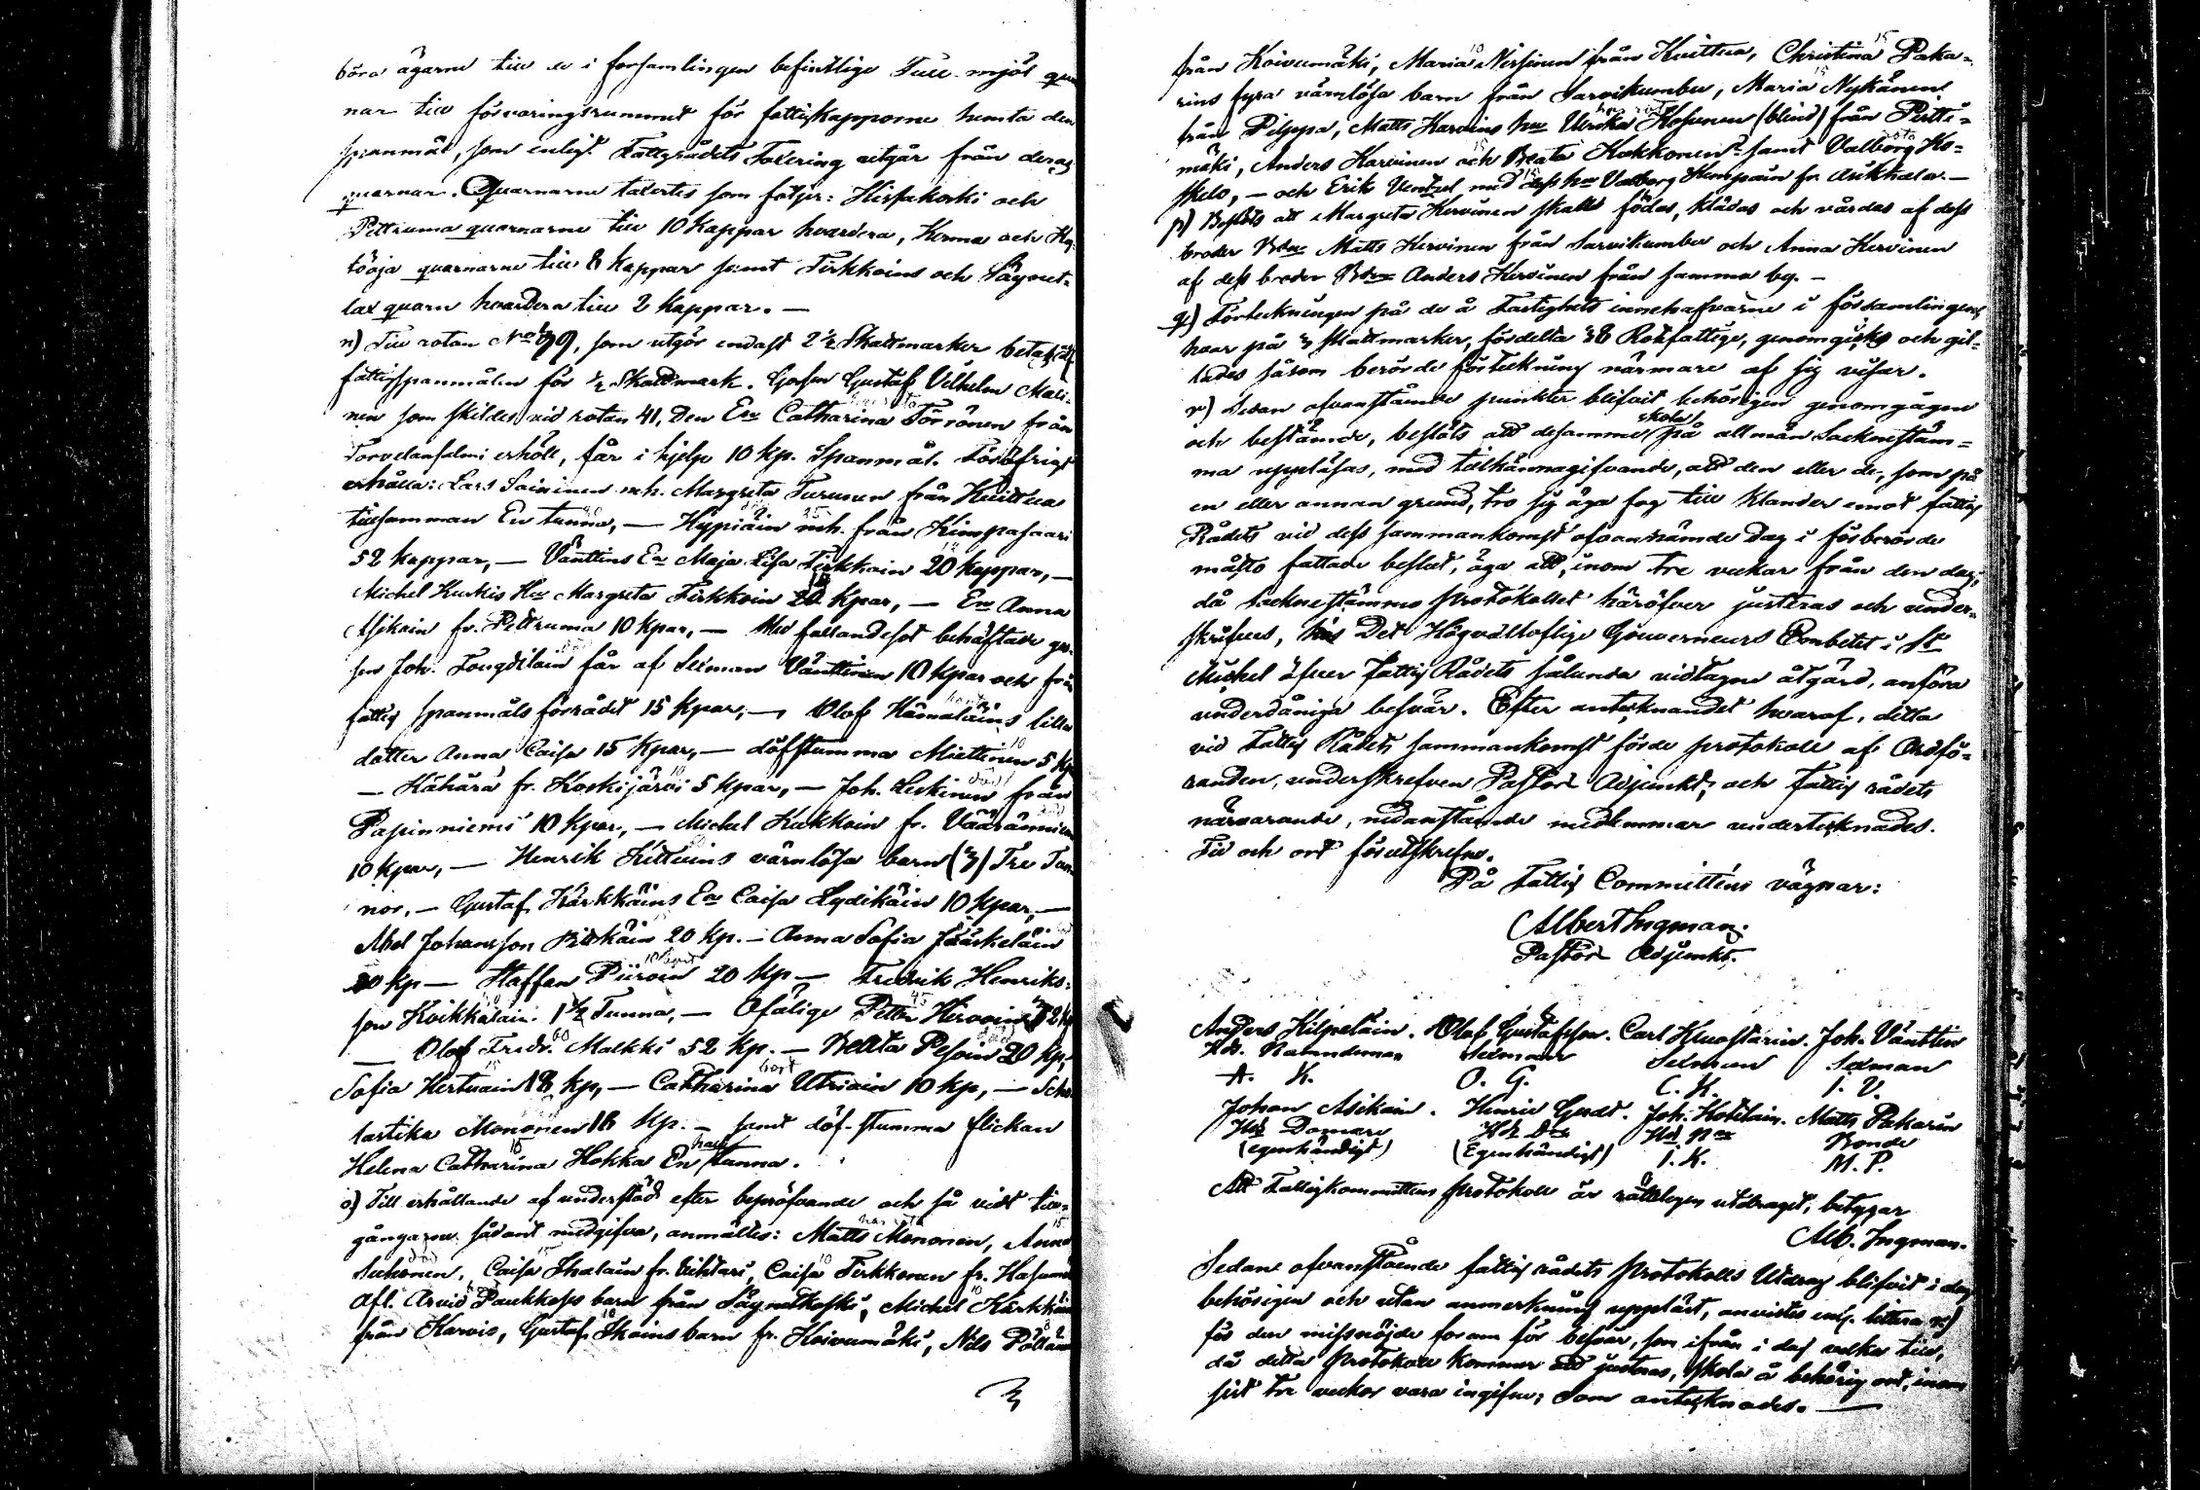 böra ägarne till de i församlingen befintlige Tull-mjöl quar
nar till förvaringsrummet för fattigkapporne hemta den
spanmål, som enligt Fattigrådets Taxering utgår från deras
quarnar. Quarnarne taxertes som följer: Hirsakoski och
Pettruma quarnarne till 10 Kappar hvardera, Kerma och
quarnarne till 8 Kappar samt Tirkkoins och Säynet-
lax quarn hvardera till 2 Kappar. —
n) Till rotan som utgör endast 2 1/2 Skattmarker betalas
fattigspanmålen för 1/2 Skattmark. Gossen Gustaf Vilhelm Mati-
nen som skildes vid rotan 41. Den Enk. Catharina Törrönen från
Torvelansalmi erhöll, får i hjelp 10 kp. Spanmål. Föröfrigt
erhålla: Lars Saininen m.h. Margreta Turunen från Kuittua
tillsamman En tunna, — Hypiäin m.h. från Kimpasaari
52 kappar, — Vänttins Enk. Maja Lisa Tirkkoin 20 kappar, —
Michel Kurkis Hu Margreta Tirkkoin 20 Kpar, — Enk. Anna
Asikain fr. Pettruma 10 kpar, — Med fallandesot behäftade gos-
sen Joh. får af Sexman Vänttinen 10 kpar och från
fattig spanmåls förrådet 15 kpar, — Olof Hämäläins lilla
dotter Anna Caisa 15 Kpar, — döfstumma Miettinen 5 kp
— Kähärä fr. Koskijärvi 5 kpar, — Joh. Leskinen från
Papinniemi 10 kpar, — Michel Kukkoin fr. Vääränniemi
10 kpar, — Henrik värnlösa barn (3) Tre Tun-
nor, — Gustaf Kärkkäins Enk. Caisa Lydikäin 10 Kpar, —
Abel Johansson 20 kp. — Anna Sofia Jääskeläin
20 kp — Staffan Piiroin 20 kp — Fredrik Henriks-
son Koikkalain 1 1/2 Tunna, — Ofälige Petter Hirvoin 52 kp
— Olof Fredr. Malkki 52 kp. — Beata Pesoin 20 kp,
Sofia Kertuain 18 kp, — Catharina Utriain 10 kp, — Scho-
lastika Mononen 18 kp. — samt döf-stumma flickan
Helena Catharina Hokka En half tunna.
o) Till erhållande af understöd efter bepröfvande och så vidt till-
gångarne sådant medgifva, anmältes: Matts Mononen, Anna
Suhonen, Caisa Ihalain fr. Caisa Tirkkonen fr.
Afl. Arvid Paukkos barn från Säynetkoski, Michel Kärkkäin
från Karvio, Gustaf barn fr. Koivumäki, Nils Pöllänen
från Koivumäki, Maria Nissinen från Kuittua, Christina Paka-
rins fyra värnlösa barn från Sarvikumbu, Maria Nykänen
från Pilppa, Matts Karvins hu Ulrika Kosunen (blind) från Pertti-
mäki, Anders Karvinen och Beata Kokkonen samt Valborg Ko-
skelo, — och Erik Ventzel med dess hu Valborg Kempain fr. —
p) Beslöts att Margreta Hirvinen skall födas, klädas och vårdas af dess
broder Bdn Matts Hirvinen från Sarvikumbu och Anna Hirvinen
af dess broder Bdn Anders Hirvinen från samma by. —
q) Förteckningen på de å Fastighets innehafvarne i församlingen,
hvar på 3 Skattmarker, fördelta 38 Rotfattige, genomgicks och gil-
lades såsom berörde förteckning närmare af sig visar.
r) Sedan ofvanstående punkter blifvit behörigen genomgågne
och bestämde, beslöts att desamma skola på allmän Sockenstäm-
ma uppläsas, med tillkännagifvande, att den eller de, som på
en eller annan grund, tro sig äga fog till klander emot fattig
Rådets vid dess sammankomst ofvannämde Dag i förberörde
måtto fattade beslut, äga att, inom tre veckor från den dag,
då sockenstämmo protokollet häröfver justeras och under-
skrifves, hos Det Högvällofliga Gouverneurs Embetet i St
Michel öfver fattig Rådets sålunda vidtagne åtgärd, anföra
underdåniga besvär. Efter antecknandet hvaraf, detta
vid Fattig Rådets sammankomst förde protokoll af Ordfö-
randen, underskrefven Pastors Adjunkt, och fattig rådets
närvarande, nedanstående medlemmar undertecknades.
Tid och ort förutskrefne.
På Fattig Committéns vägnar:
Albert Ingman.
Pastors Adjunkt.
Anders Kilpeläin. Olof Gustafsson. Carl Joh. Vänttin
Hds. Nämndeman Sexman Sexman Sexman
A. K. O. G. C. K. I. V.
Johan Asikain. Henric Joh. Kotilain. Matts Pakarin
Hds Domare Hds Dre Hds Bonde
(egenhändigt) (Egenhändigt) I. K. M. P.
Att Fattigkommittens protokoll är rätteligen utdraget, betygar
Alb. Ingman.
Sedan ofvanstående fattig rådets Protokolls Utdrag blifvit i dag
behörigen och utan anmerkning uppläst, anvistes enl. littera r)
för den missnöjde forum för besvär, som ifrån i dag veckor till,
då detta Protokoll kommer att justeras, skola å behörig ort, inom
sist tre veckor vara ingifne; Som antecknades. —